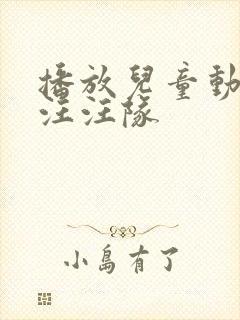 播放兒童動
汪汪隊
小島有了